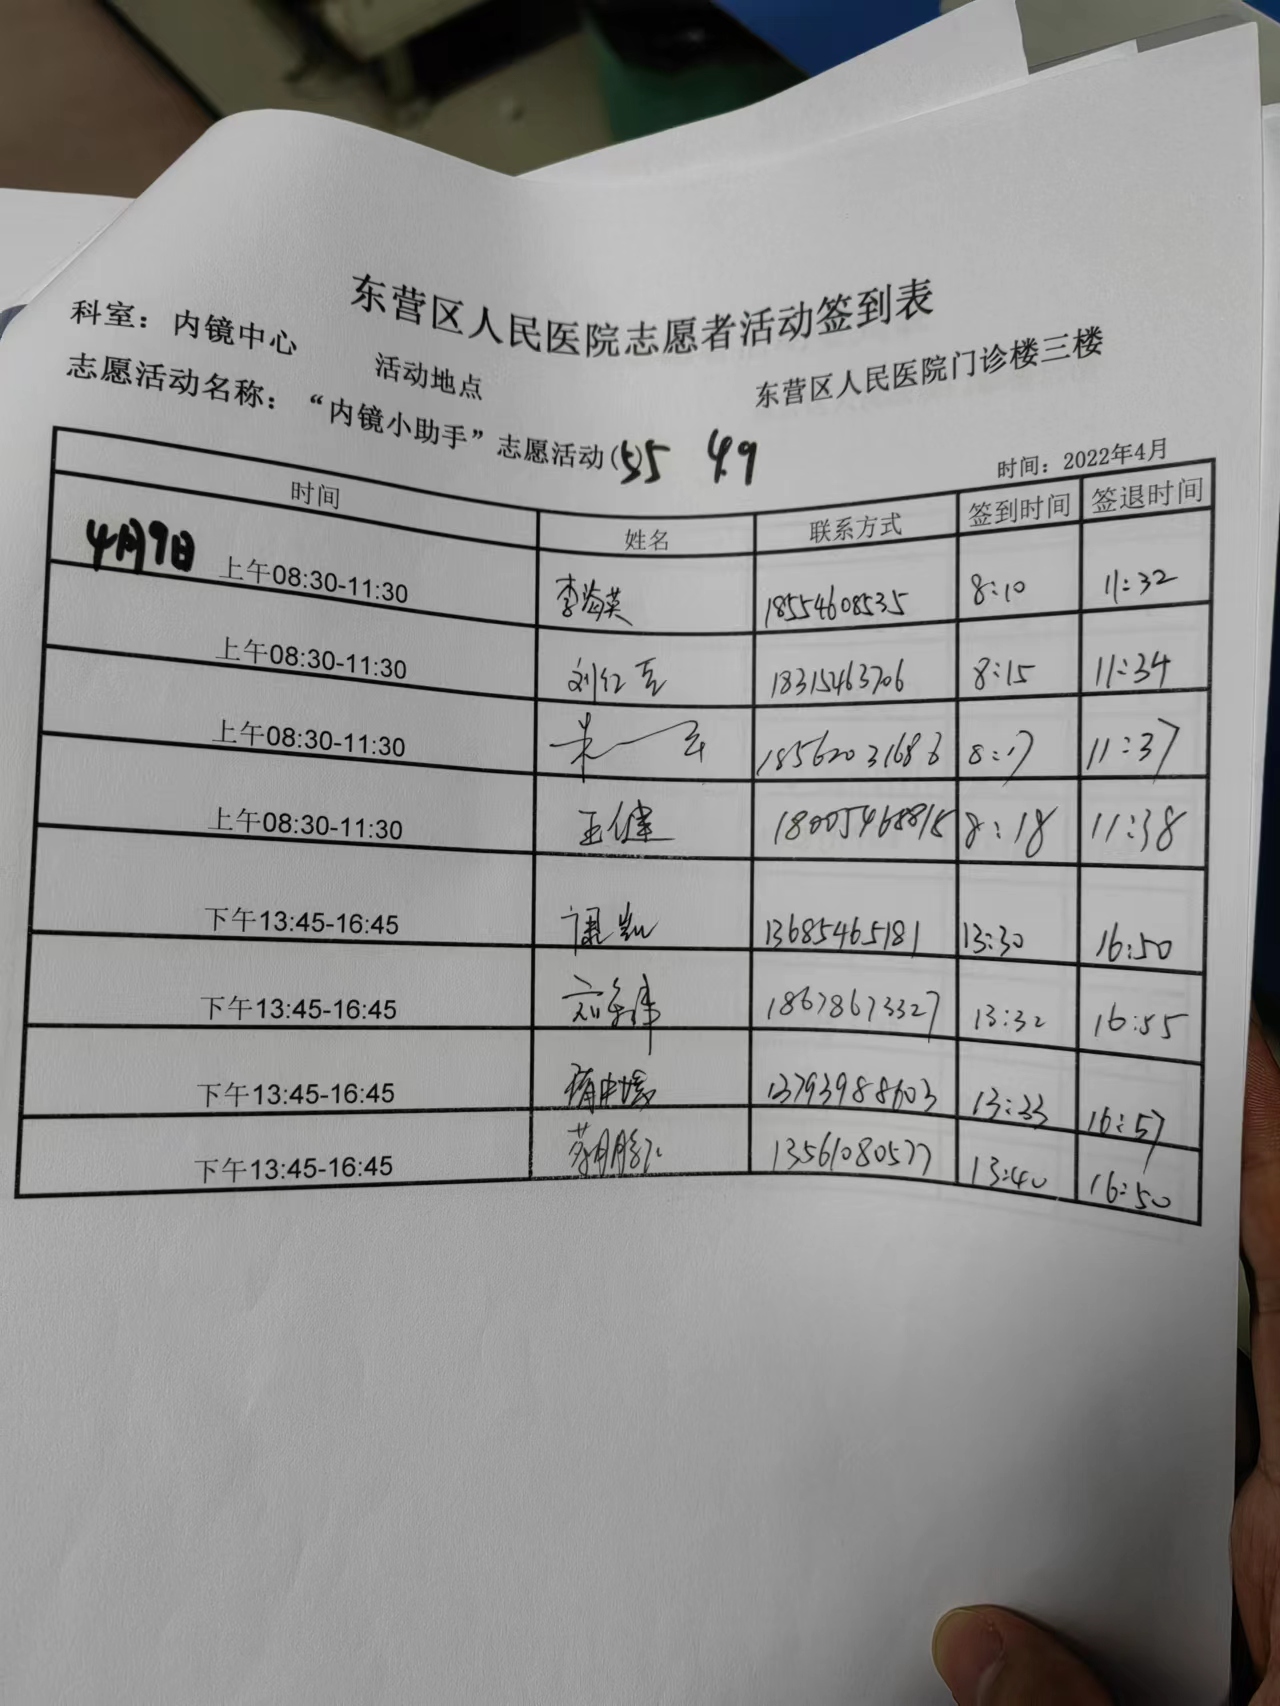 东营区人民医院志愿者活动签到表
科室：内镜中心 活动地点 东营区人民医院门诊楼三楼
志愿活动名称：“内镜小助手”志愿活动(55 4.9 时间：2022年4月
时间 姓名 联系方式 签到时间 签退时间
4月9日 上午08:30-11:30 李海英 18554608535 8:10 11:32
上午08:30-11:30 刘红 18315463706 8:15 11:34
上午08:30-11:30 朱一 18562031686 8:17 11:37
上午08:30-11:30 王健 18005468815 8:18 11:38
下午13:45-16:45 13685465181 13:30 16:50
下午13:45-16:45 18678673327 13:32 16:55
下午13:45-16:45 13793988603 13:33 16:57
下午13:45-16:45 13561080577 13:40 16:50